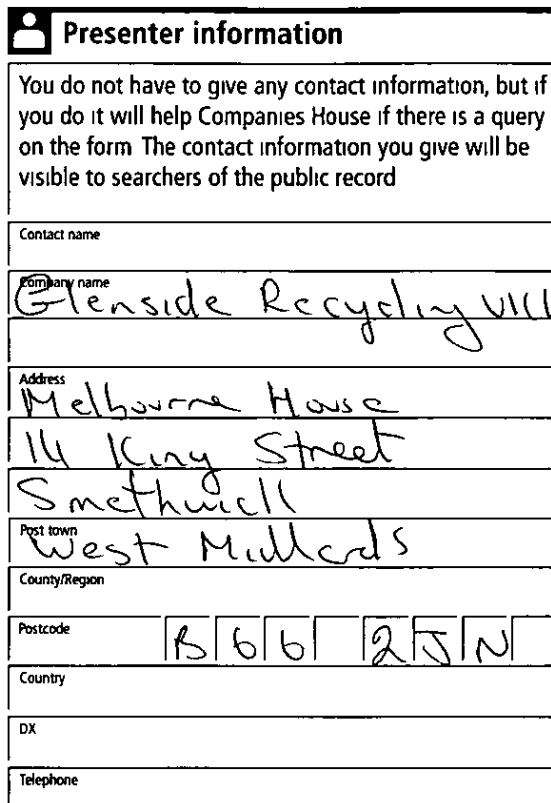 Presenter information
You do not have to give any contact information, but if
you do it will help Companies House if there is a query
on the form The contact information you give will be
visible to searchers of the public record
Contact name
Company name
Glenside Recycling
Address
Melbourne House
14 King Street
Smethwick
Post town
West Midlands
County/Region
Postcode
B66 2JN
Country
DX
Telephone